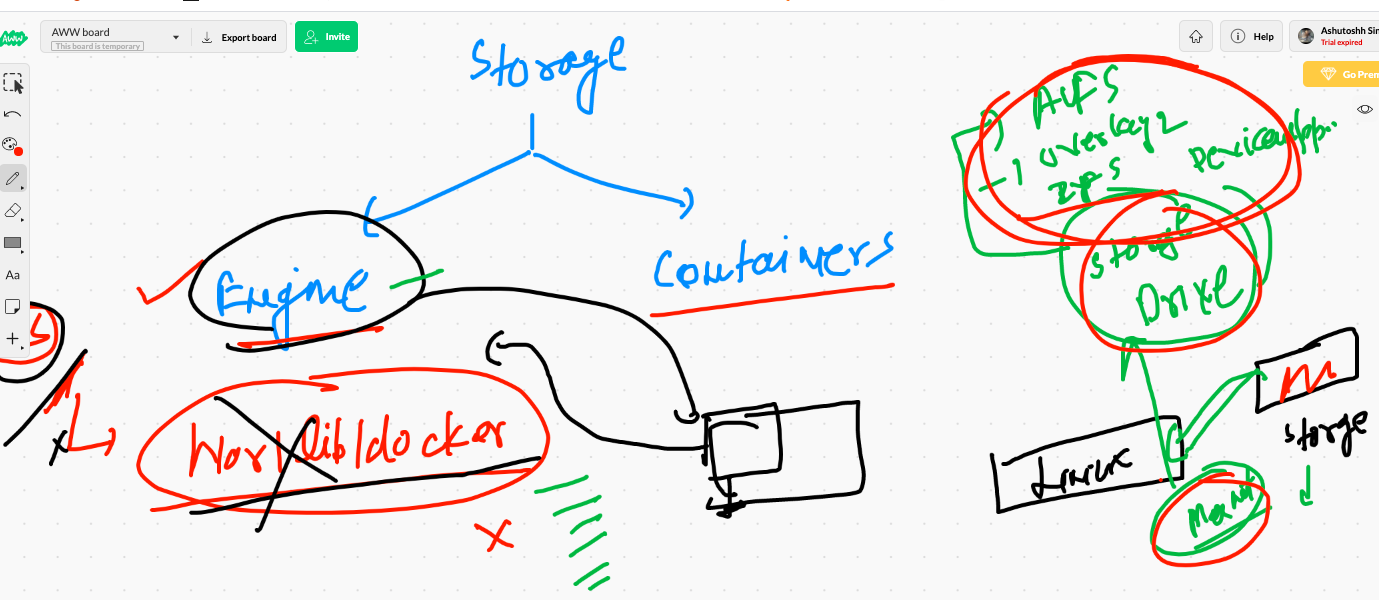 AWW
AWW board
This board is temporary
Export board
Invite
Help
Ashutoshh Sin
Trial expired
Go Prem
Aa
Storage
Engine
Containers
lib/docker
AUFS
overlay2
ZFS
Storage
Linux
storge
Mount